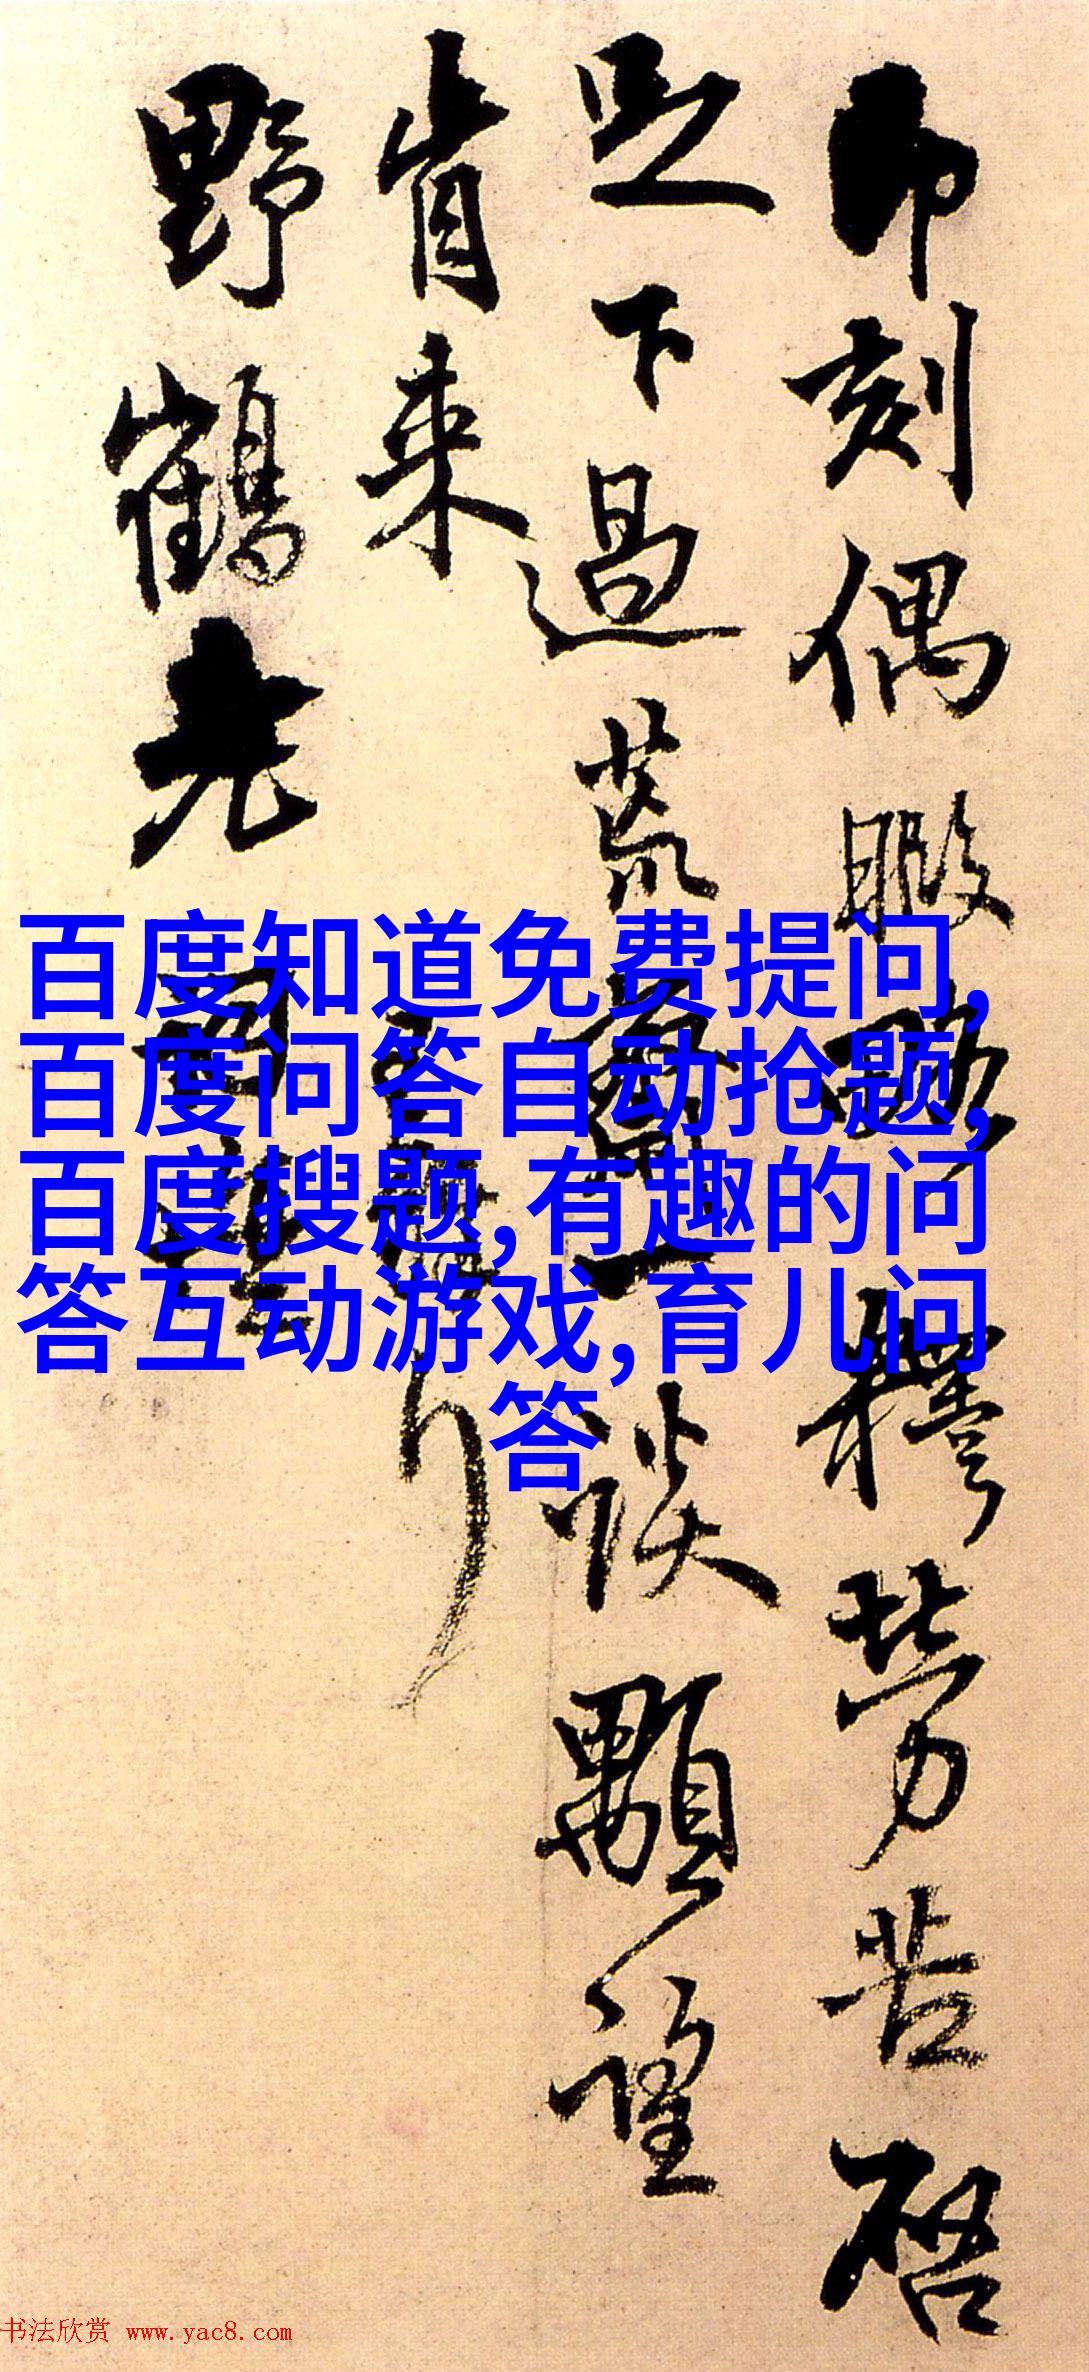 即刻偶暇略釋勞苦啓
足下過荒齋一談顒望
肯来
野鶴老
百度知道免费提问,
百度问答自动抢题,
百度搜题,有趣的问
答互动游戏,育儿问
答
书法欣赏 www.yac8.com